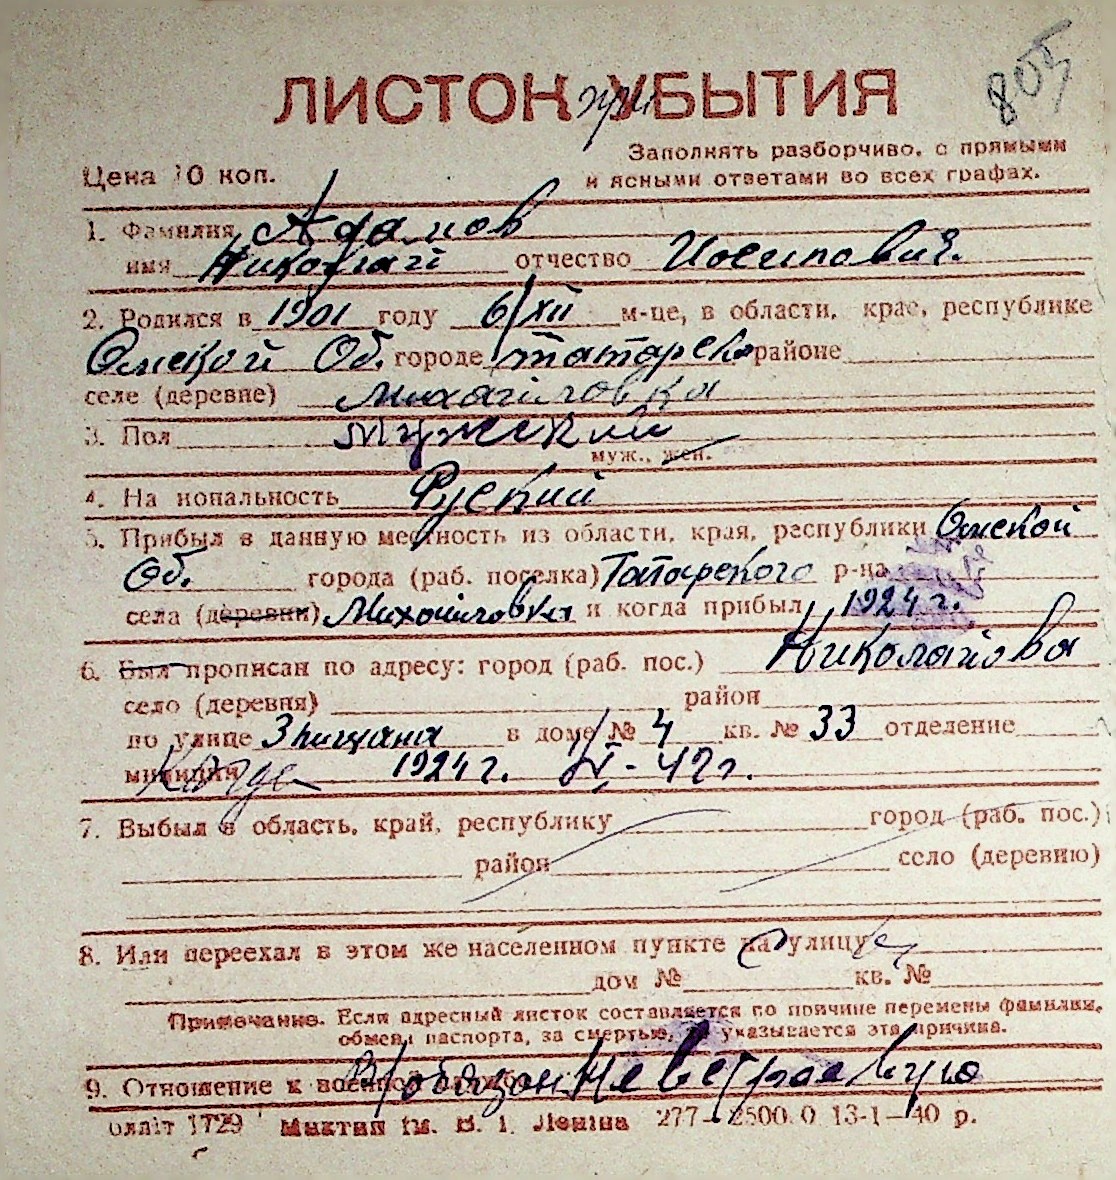 805
ЛИСТОК при УБЫТИЯ
Заполнять разборчиво, с прямыми
Цена 10 коп. и ясными ответами во всех графах.
1. Фамилия Адамов
имя Николай отчество Иосипович.
2. Родился в 1901 году 6/XII м-це, в области, крае, республике
Омской Об. городе татарско районе
селе (деревне) Михайловка
3. Пол Мужский
муж., жен.
4. На иональность Руский
5. Прибыл в данную местность из области, края, республики Омской
Об. города (раб. поселка) Татарского р-на
села (деревни) Михайловка и когда прибыл 1924 г.
6. Был прописан по адресу: город (раб. пос.) Николаова
село (деревня) район
по улице в доме № 4 кв. № 33 отделение
милиции Когда 1924 г. 42 г.
7. Выбыл в область, край, республику город (раб. пос.)
район село (деревню)
8. Или переехал в этом же населенном пункте на улицу
дом № кв. №
Примечание. Если адресный листок составляется по причине перемены фамилии,
обмена паспорта, за смертью, указывается эта причина.
9. Отношение к военной службе В/обязан
1729 Миктип ім. В. І. Леніна 277—2500.0 13-1—40 р.